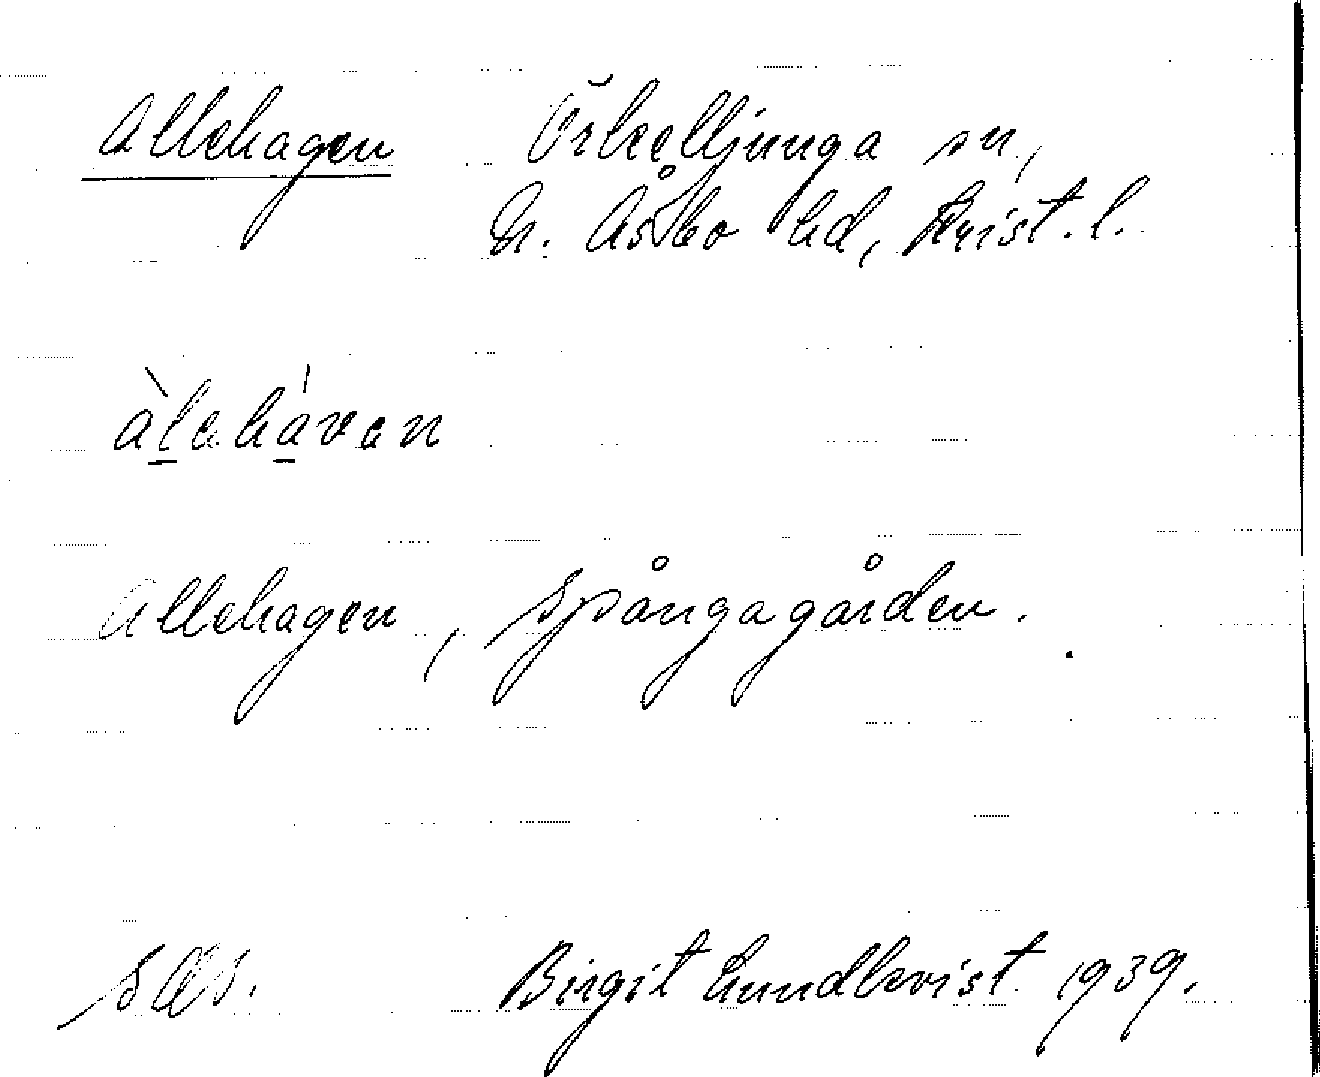 Allehagen Örkelljunga sn,
N. Åsbo hd, Krist. l.
àlehávan
Allehagen, Spångagården.
Birgit Lundkvist 1939.